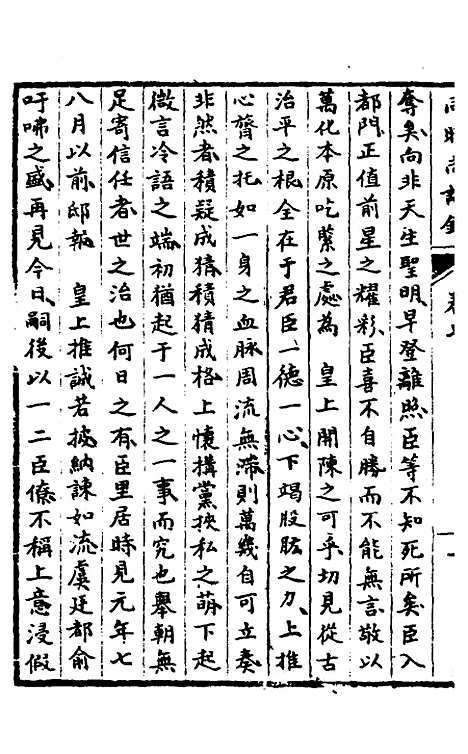 奪矣向非天生聖明早登離照臣等不知死所矣臣入
都門正值前星之耀彩臣喜不自勝而不能無言敬以
萬化本原吃緊之處為　皇上開陳之可乎切見從古
治平之根全在于君臣一德一心下竭股肱之力上推
心膂之托如一身之血脉周流無滯則萬幾自可立奏
非然者積疑成猜積猜成格上懷搆黨挾私之萌下起
微言冷語之端初猶起于一人之一事而究也舉朝無
足寄信任者世之治也何日之有臣里居時見元年七
八月以前邸報　皇上推誠若披納諫如流虞廷都俞
吁咈之盛再見今日嗣後以一二臣僚不稱上意浸假